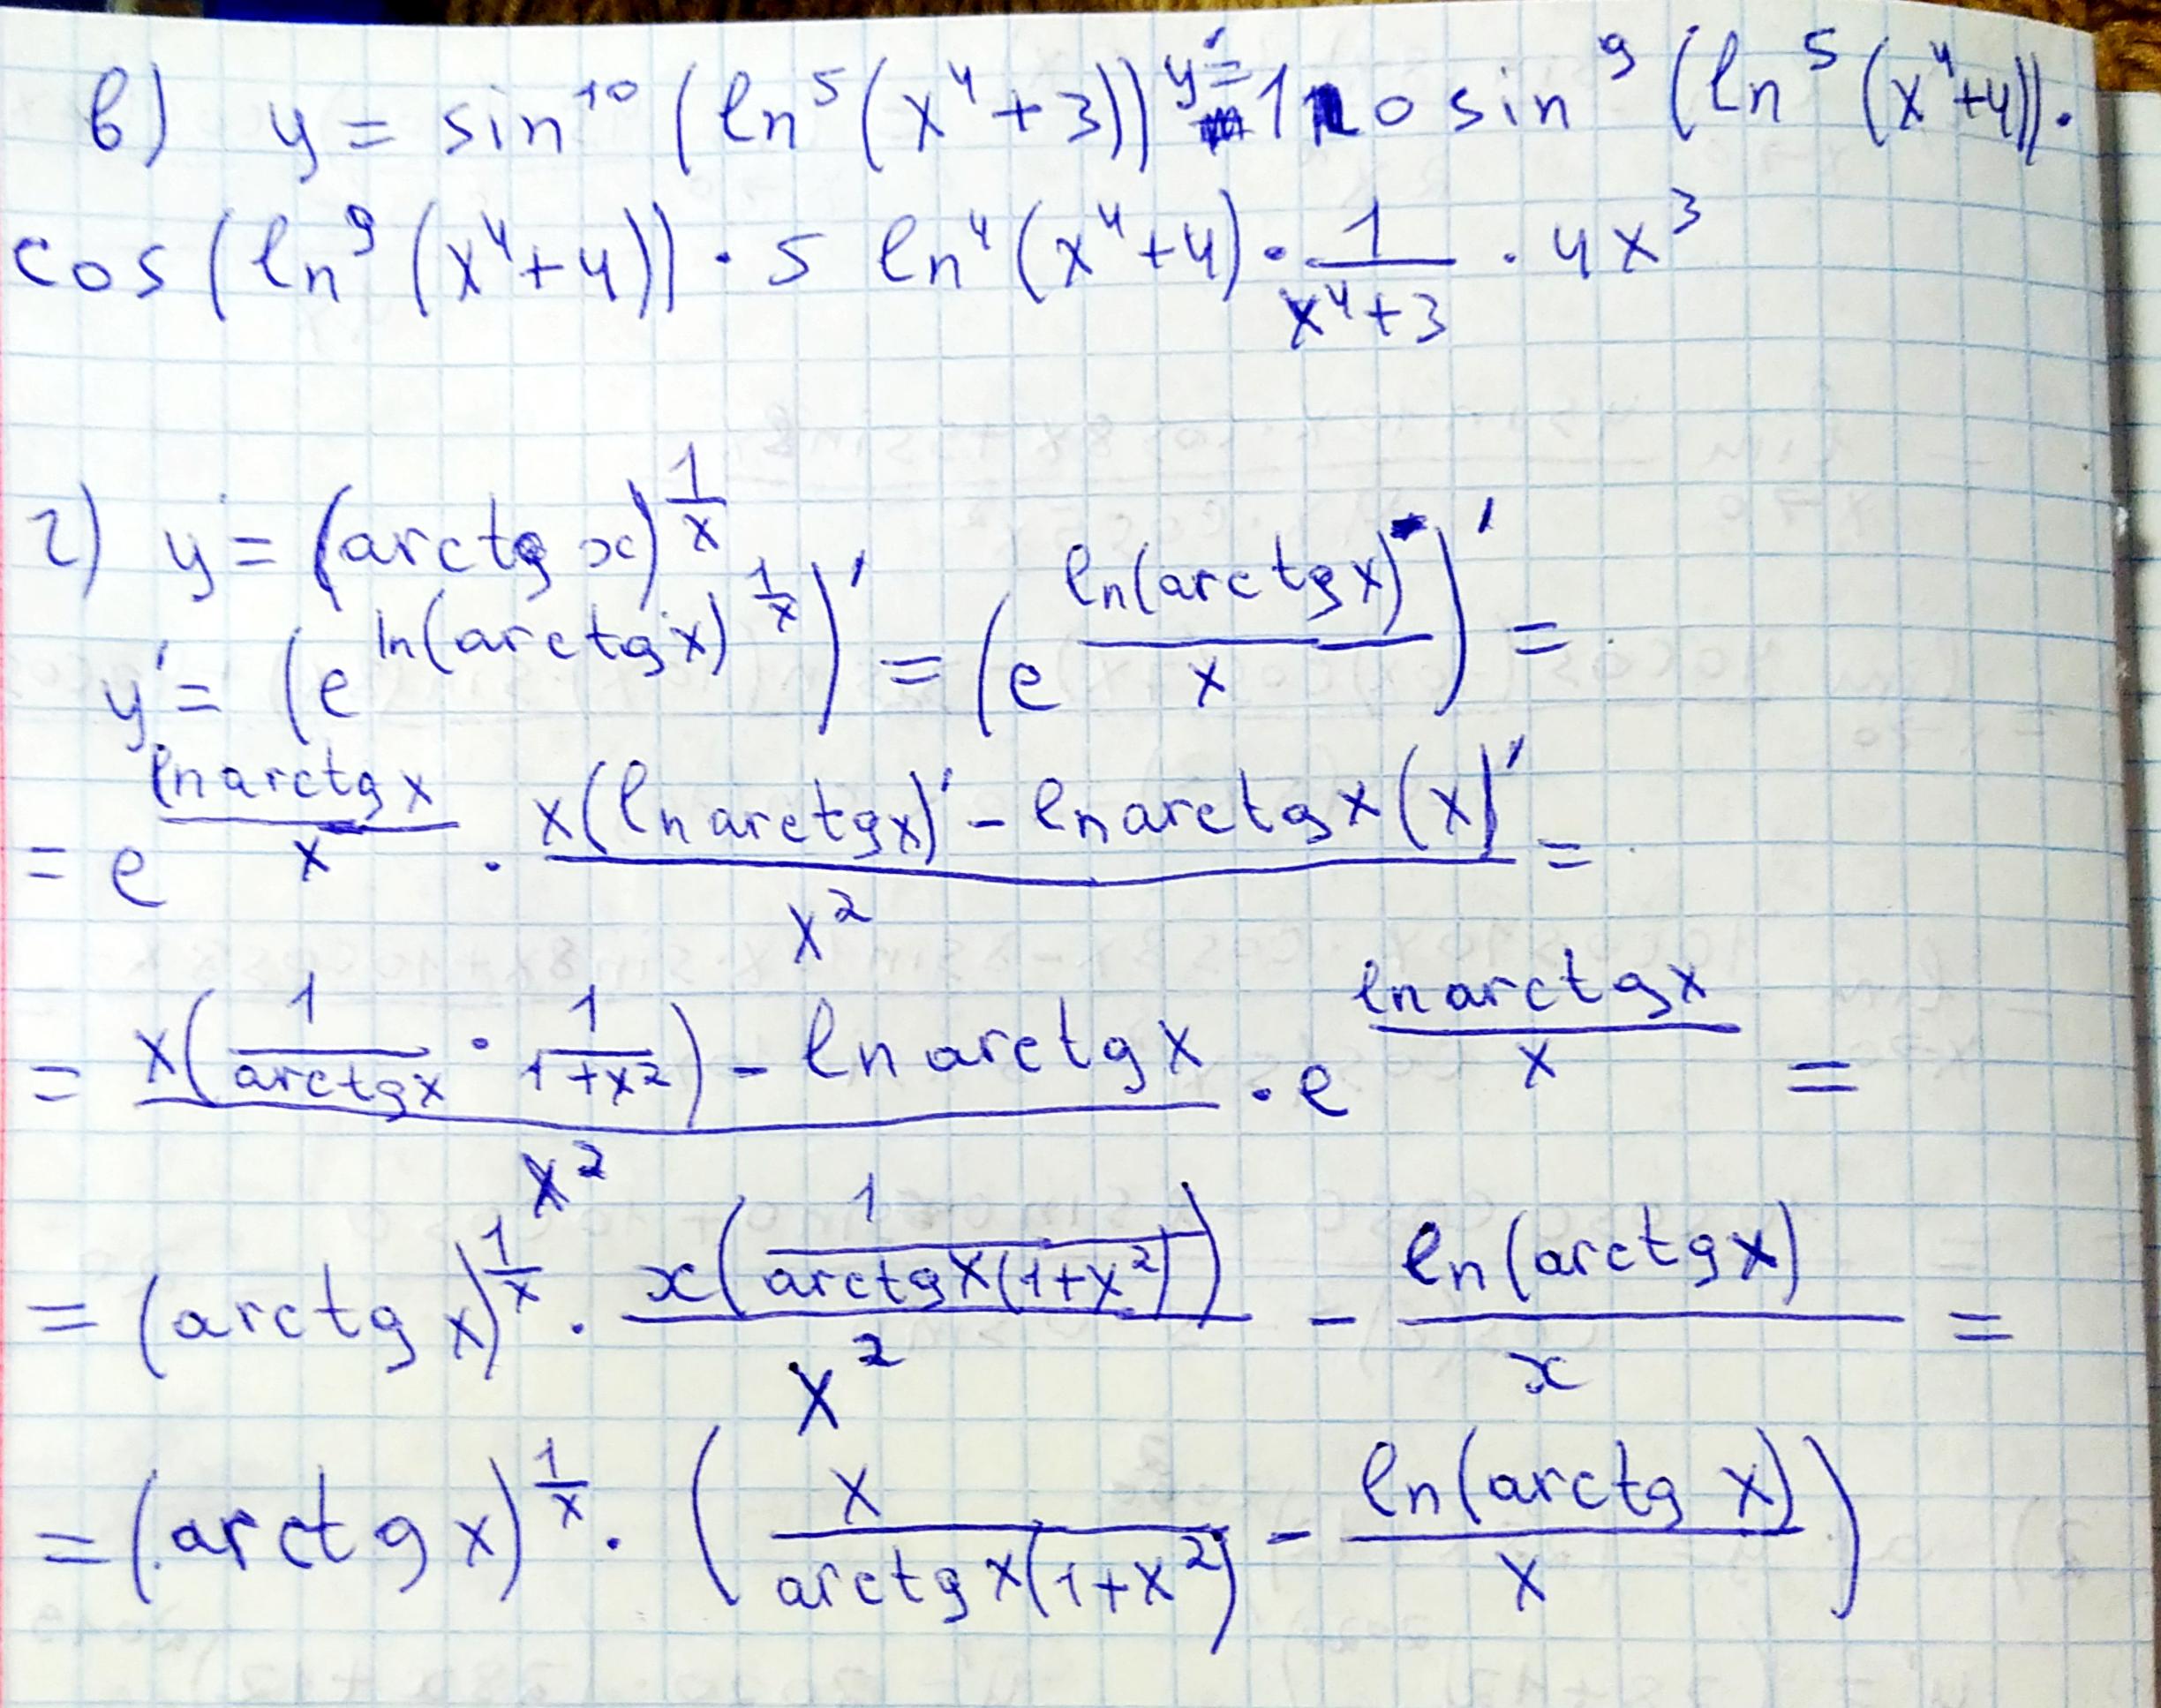 в) y = sin¹⁰(ln⁵(x⁴+3)) y' = 10 sin⁹(ln⁵(x⁴+4))·
cos(ln⁹(x⁴+4))·5 ln⁴(x⁴+4)·1/(x⁴+3)·4x³
г) y = (arctg x)^(1/x)
y' = (e^(ln(arctg x)^(1/x)))' = (e^(ln(arctg x)/x))' =
= e^(ln arctg x/x) · (x(ln arctg x)' - ln arctg x(x)')/x² =
= (x(1/(arctg x) · 1/(1+x²)) - ln arctg x)/x² · e^(ln arctg x/x) =
= (arctg x)^(1/x) · (x(1/(arctg x(1+x²))))/x² - ln(arctg x)/x =
= (arctg x)^(1/x) · (x/(arctg x(1+x²)) - ln(arctg x)/x)